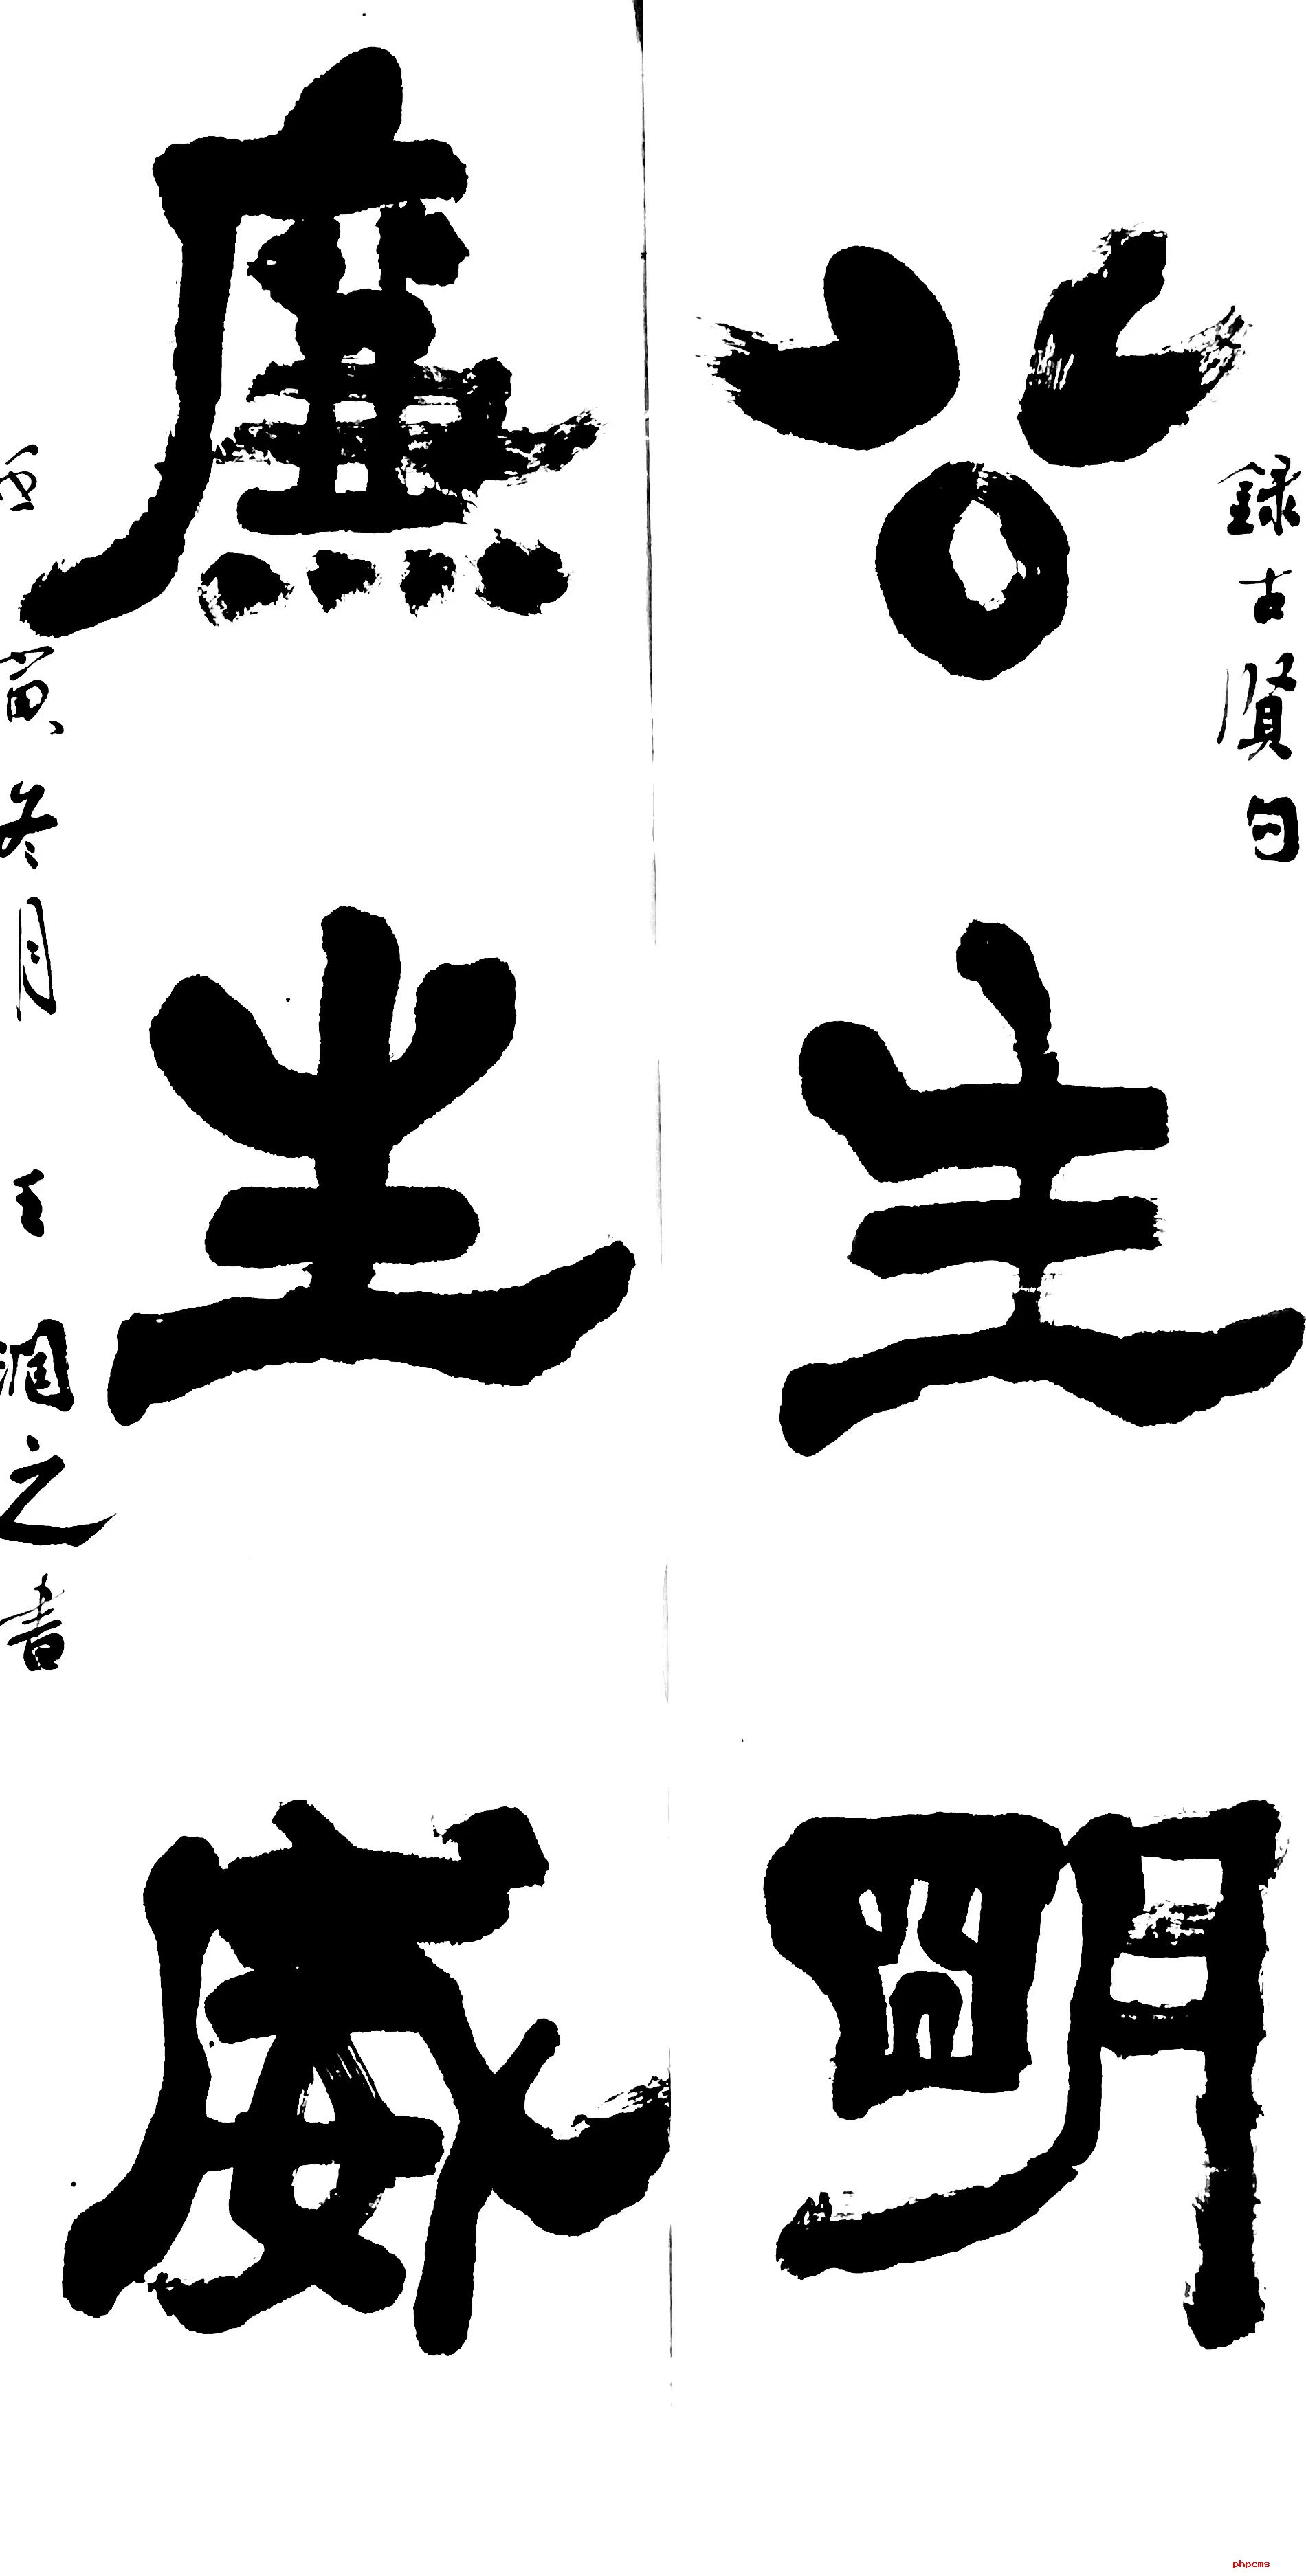 錄古賢句
公生明
廉生威
寅冬月 王涸之書
phpcms